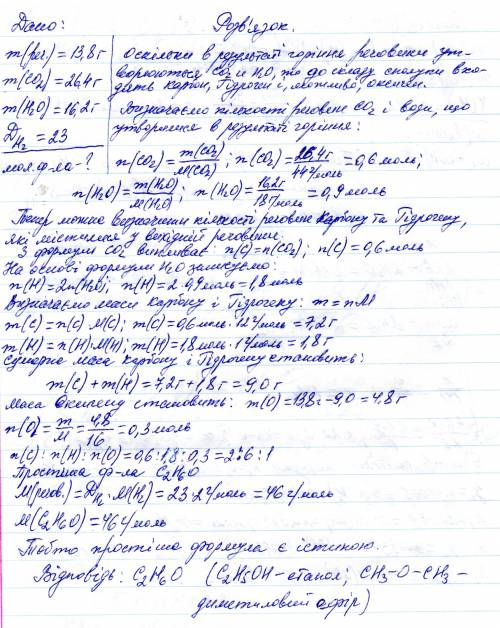 Дано:
Розв'язок.
m(реч.) = 13,8г
m(CO2) = 26,4г
m(H2O) = 16,2г
DH2 = 23
мол. ф-ла - ?
Оскільки в результаті горіння речовини ут-
ворюються CO2 и H2O, то до складу сполуки вхо-
дять Карбон, Гідроген і, можливо, оксиген.
Визначаємо кількості речовин CO2 і води, що
утворилися в результаті горіння:
n(CO2) = m(CO2)/M(CO2); n(CO2) = 26,4г/44г/моль = 0,6 моль;
n(H2O) = m(H2O)/M(H2O); n(H2O) = 16,2г/18г/моль = 0,9 моль
Тепер можна визначити кількості речовин Карбону та Гідрогену,
які містилися у вихідній речовині.
З формули CO2 випливає: n(C) = n(CO2); n(C) = 0,6 моль
На основі формули H2O записуємо:
n(H) = 2n(H2O); n(H) = 2·0,9 моль = 1,8 моль
Визначаємо маси Карбону і Гідрогену: m = nM
m(C) = n(C)·M(C); m(C) = 0,6 моль·12г/моль = 7,2г
m(H) = n(H)·M(H); m(H) = 1,8 моль·1г/моль = 1,8г
Сумарна маса Карбону і Гідрогену становить:
m(C) + m(H) = 7,2г + 1,8г = 9,0г
Маса Оксигену становить: m(O) = 13,8г - 9,0 = 4,8г
n(O) = m/M = 4,8/16 = 0,3 моль
n(C) : n(H) : n(O) = 0,6 : 1,8 : 0,3 = 2:6:1
Простіша ф-ла C2H6O
M(реков.) = DH2·M(H2) = 23·2г/моль = 46г/моль
M(C2H6O) = 46г/моль
Тобто простіша формула є істиною.
Відповідь: C2H6O (C2H5OH - етанол; CH3-O-CH3 -
диметиловий ефір)